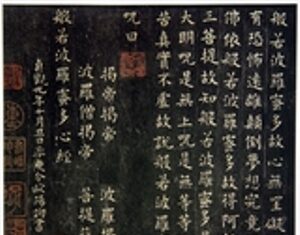 般若波羅蜜多故心無罣礙
有恐怖遠離顛倒夢想究竟
佛依般若波羅蜜多故得阿
三菩提故知般若波羅蜜多
大明咒是無上咒是無等等
苦真實不虛故說般若波羅
咒曰
揭帝揭帝 波羅
波羅僧揭帝 菩提
般若波羅蜜多心經